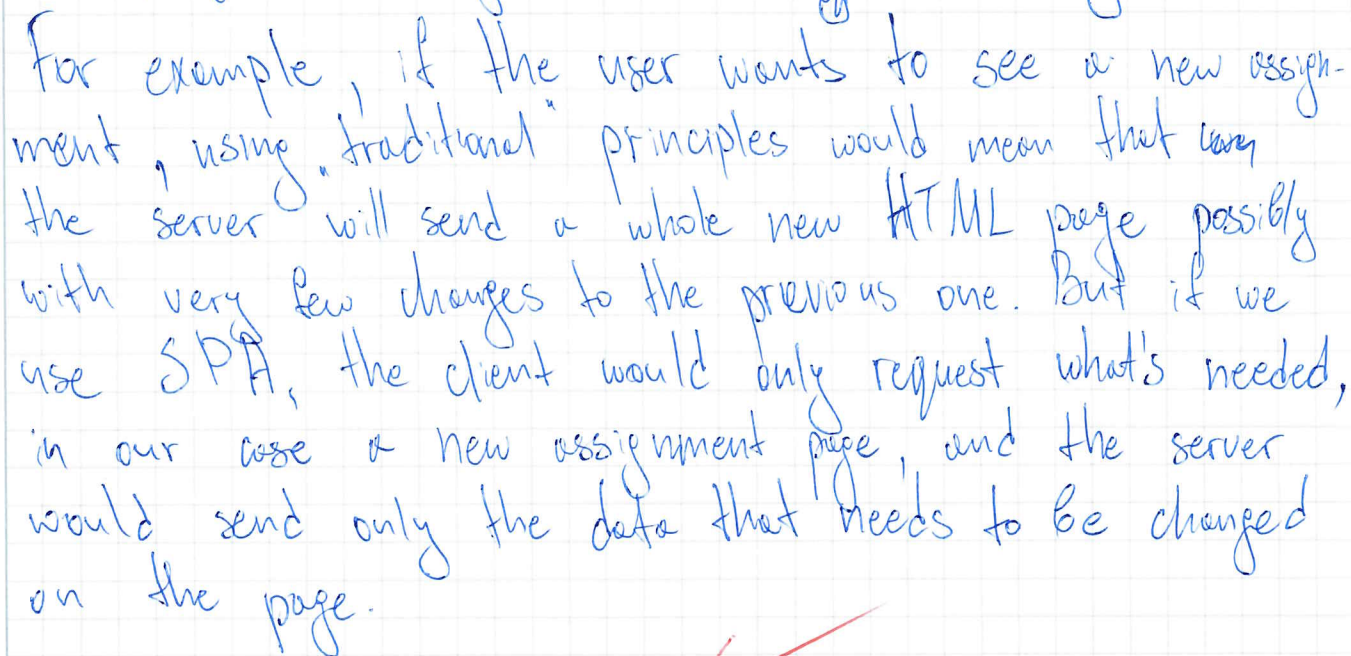 For example, if the user wants to see a new assign-
ment, using „traditional“ principles would mean that
the server will send a whole new HTML page possibly
with very few changes to the previous one. But if we
use SPA, the client would only request what's needed,
in our case a new assignment page, and the server
would send only the data that needs to be changed
on the page.